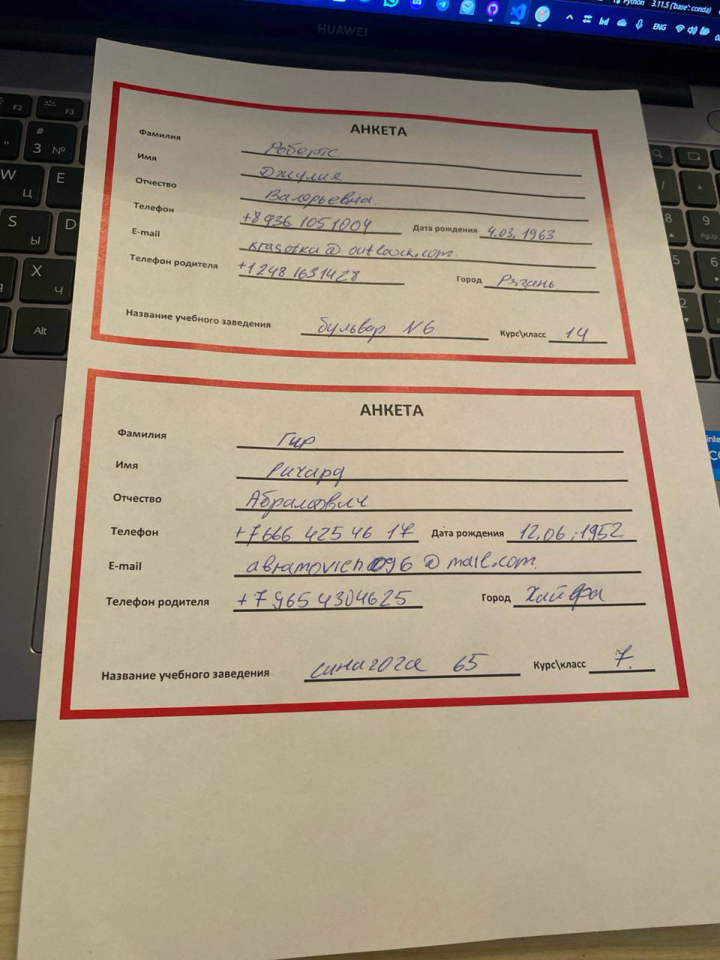 Python 3.11.5 ('base': conda)
ENG
HUAWEI
АНКЕТА
Фамилия Робертс
Имя Джулия
Отчество Валерьевна.
Телефон +8936 1051004 Дата рождения 4.03.1963
E-mail krasotka@outlook.com.
Телефон родителя +1248 1631428 Город Рязань
Название учебного заведения бульвар N6 Курс\класс 14
АНКЕТА
Фамилия Гир
Имя Ричард
Отчество Абрамович
Телефон +7666 425 46 17 Дата рождения 12.06.1952
E-mail abramovich096@mail.com.
Телефон родителя +7965 4304625 Город Хайфа
Название учебного заведения синагога 65 Курс\класс 7.